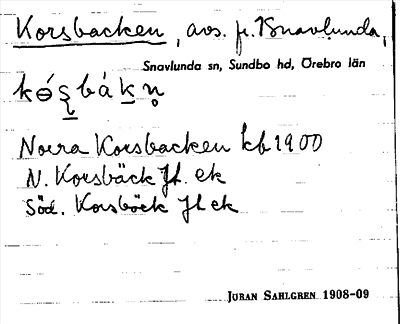 Korsbacken, avs. fr. Snavlunda,
Snavlunda sn, Sundbo hd, Örebro län
Norra Korsbacken kb 1900
N. Korsbäck Jt. ek
Söd. Korsbäck Jt ek
JÖRAN SAHLGREN 1908-09